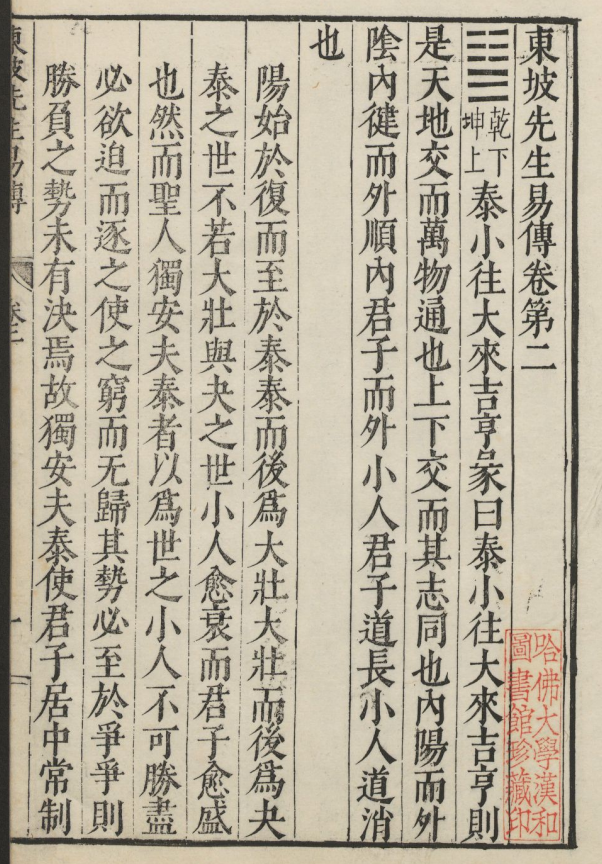 東坡先生易傳卷第二
䷊乾下坤上泰小往大來吉亨彖曰泰小往大來吉亨則
是天地交而萬物通也上下交而其志同也內陽而外
陰內健而外順內君子而外小人君子道長小人道消
也
陽始於復而至於泰泰而後爲大壯大壯而後爲夬
泰之世不若大壯與夬之世小人愈衰而君子愈盛
也然而聖人獨安夫泰者以爲世之小人不可勝盡
必欲迫而逐之使之窮而无歸其勢必至於爭爭則
勝負之勢未有決焉故獨安夫泰使君子居中常制
東坡先生易傳 卷二 一
哈佛大學漢和
圖書館珍藏印